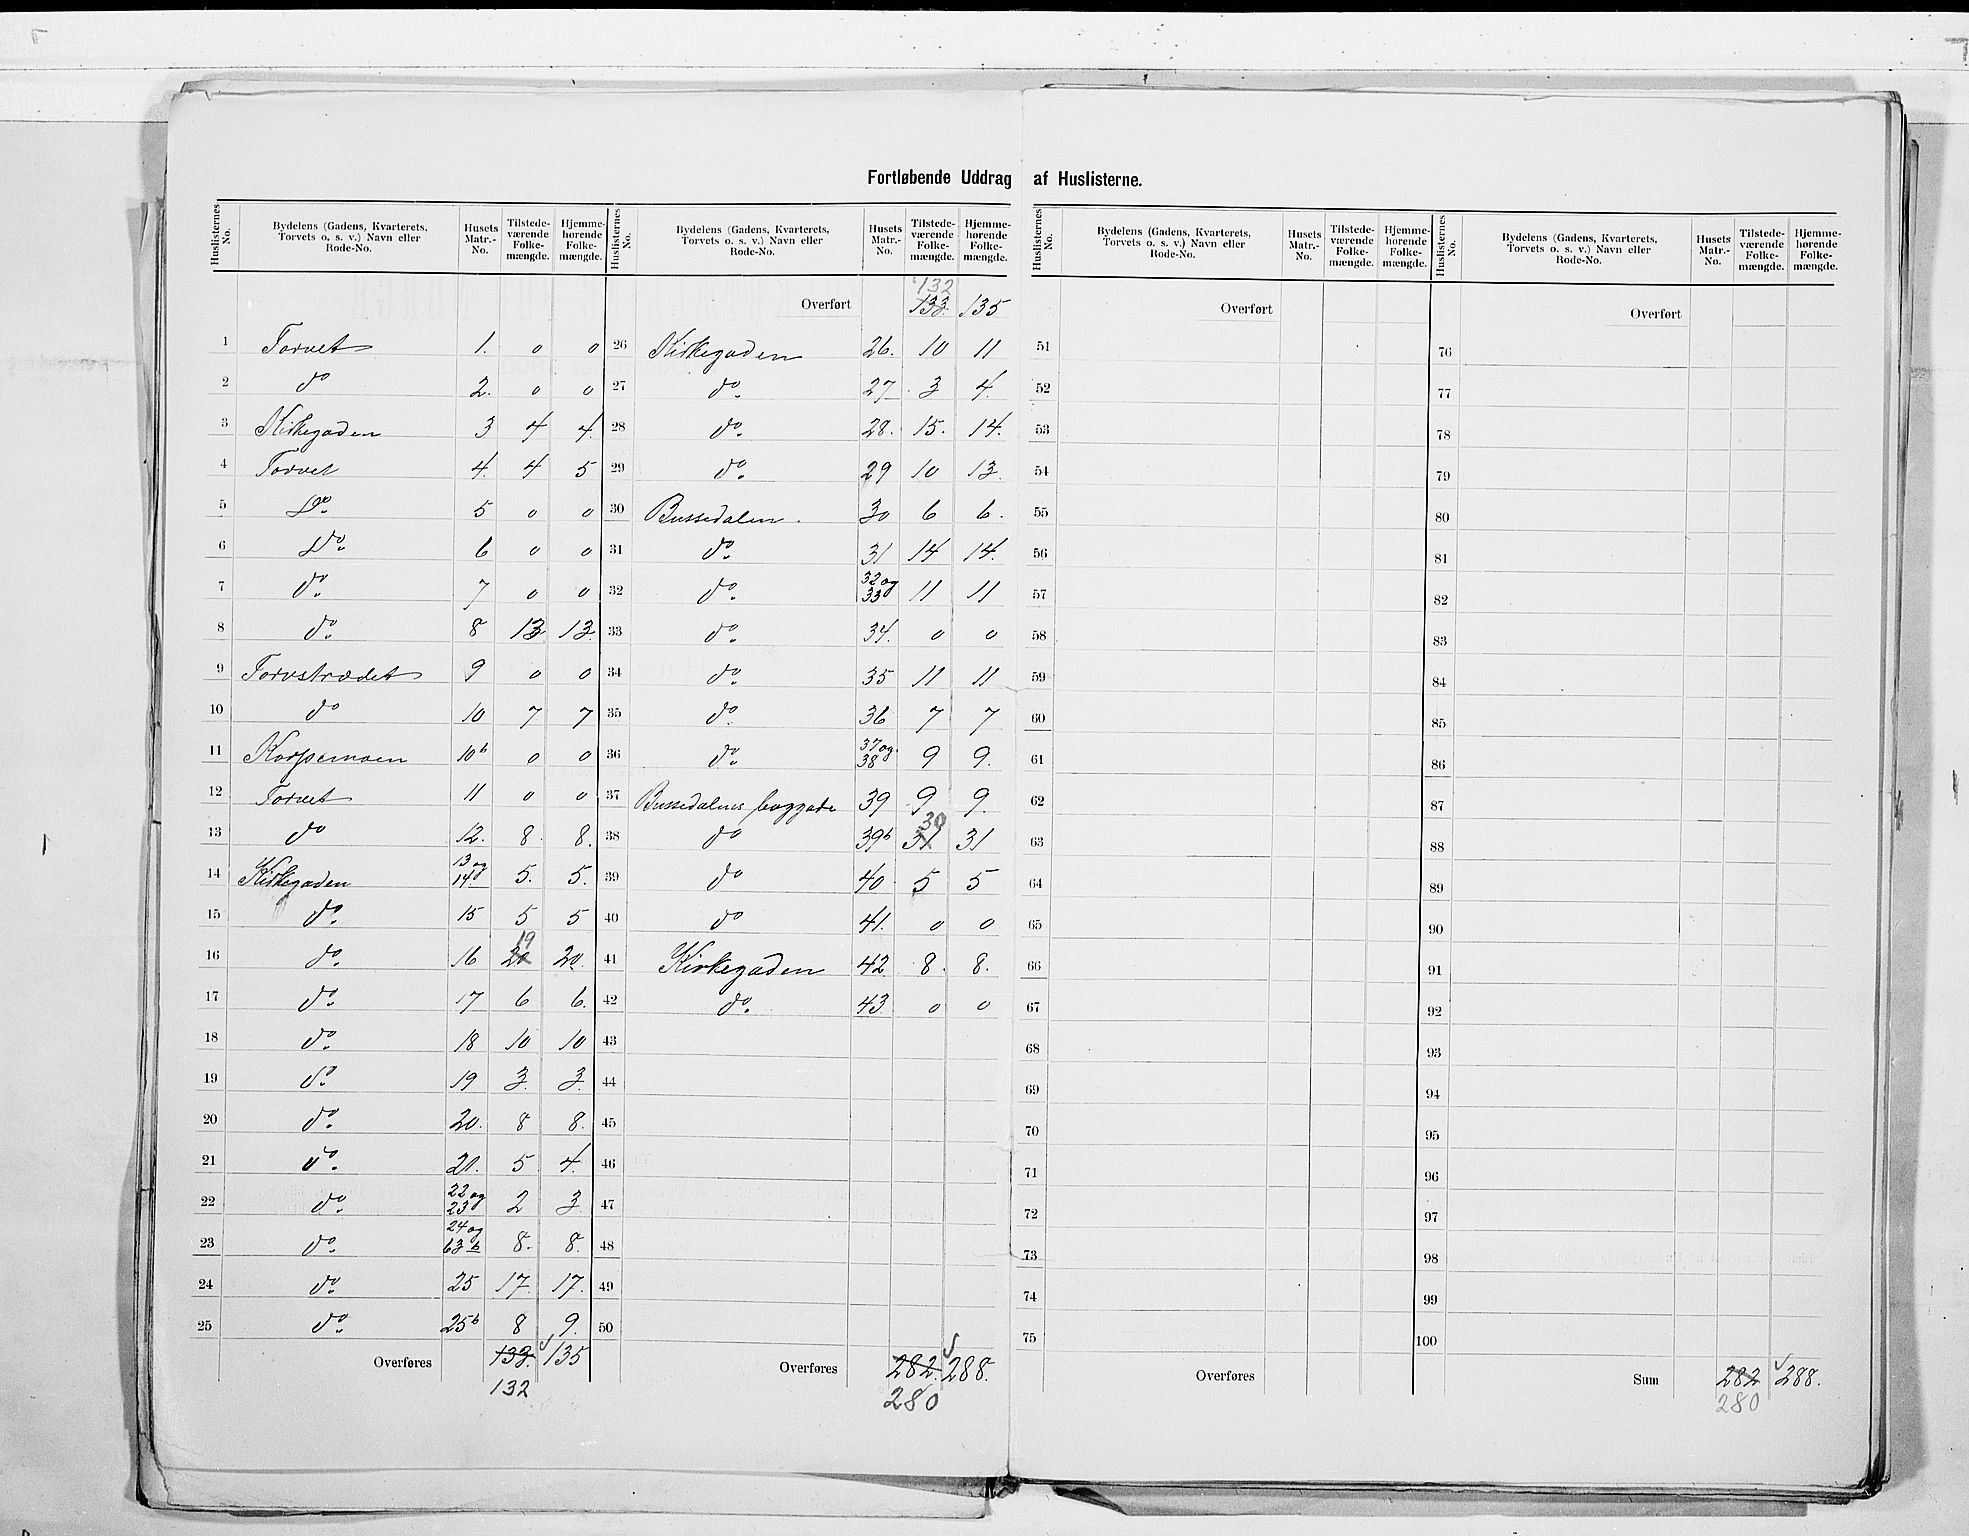 Fortløbende Uddrag af Huslisterne.
Huslisternes No. | Bydelens (Gadens, Kvarterets, Torvets o. s. v.) Navn eller Rode-No. | Husets Matr.-No. | Tilstedeværende Folkemængde. | Hjemmehørende Folkemængde.
1 Torvet 1. 0 0
2 do 2. 0 0
3 Kirkegaden 3 4 4.
4 Torvet 4. 4 5
5 Do. 5 0 0
6 Do. 6 0 0
7 do. 7 0 0
8 do. 8 13 13.
9 Torvstrædet 9 0 0
10 do 10 7 7
11 10b 0 0
12 Torvet 11 0 0
13 do 12. 8. 8.
14 Kirkegaden 13 og 14. 5. 5.
15 do. 15 5 5
16 do. 16 20 19 20.
17 do. 17 6 6.
18 do. 18 10 10
19 do. 19 3. 3.
20 do. 20. 8 8.
21 do. 21. 5 4.
22 do. 22 og 23 2 3.
23 do. 24 og 63b 8. 8.
24 do. 25 17. 17.
25 do. 25b 8 9.
Overføres 133. 135
132
Huslisternes No. | Bydelens (Gadens, Kvarterets, Torvets o. s. v.) Navn eller Rode-No. | Husets Matr.-No. | Tilstedeværende Folkemængde. | Hjemmehørende Folkemængde.
132
Overført 133. 135
26 Kirkegaden 26. 10 11
27 do. 27 3 4.
28 do. 28. 15. 14.
29 do. 29 10 13.
30 Bussedalen. 30 6 6.
31 do. 31 14 14.
32 do. 32 og 33 11 11
33 do. 34. 0 0
34 do. 35 11 11
35 do. 36 7 7
36 do. 37 og 38 9 9.
37 Bussedalens baggade 39 9 9.
38 do 39b 31 30 31
39 do 40 5 5
40 do 41. 0 0
41 Kirkegaden 42 8. 8.
42 do. 43 0 0
43
44
45
46
47
48
49
50
Overføres 282. 288.
280
Huslisternes No. | Bydelens (Gadens, Kvarterets, Torvets o. s. v.) Navn eller Rode-No. | Husets Matr.-No. | Tilstedeværende Folkemængde. | Hjemmehørende Folkemængde.
Overført
51
52
53
54
55
56
57
58
59
60
61
62
63
64
65
66
67
68
69
70
71
72
73
74
75
Overføres
Huslisternes No. | Bydelens (Gadens, Kvarterets, Torvets o. s. v.) Navn eller Rode-No. | Husets Matr.-No. | Tilstedeværende Folkemængde. | Hjemmehørende Folkemængde.
Overført
76
77
78
79
80
81
82
83
84
85
86
87
88
89
90
91
92
93
94
95
96
97
98
99
100
Sum 282 288.
280